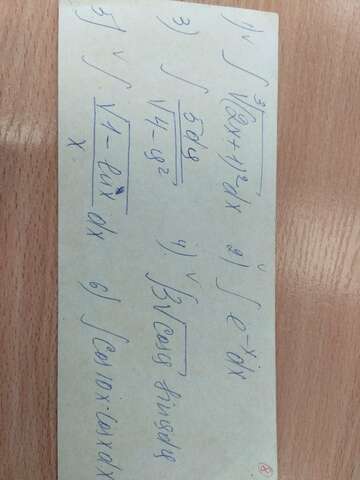 1) ∫ ∛(2x+1)² dx 2) ∫ e⁻ˣ dx
3) ∫ 5dy / √(4-y²) 4) ∫ 3√cos y sin y dy
5) ∫ √(1-ln x) / x dx 6) ∫ cos 10x · cos x dx
8